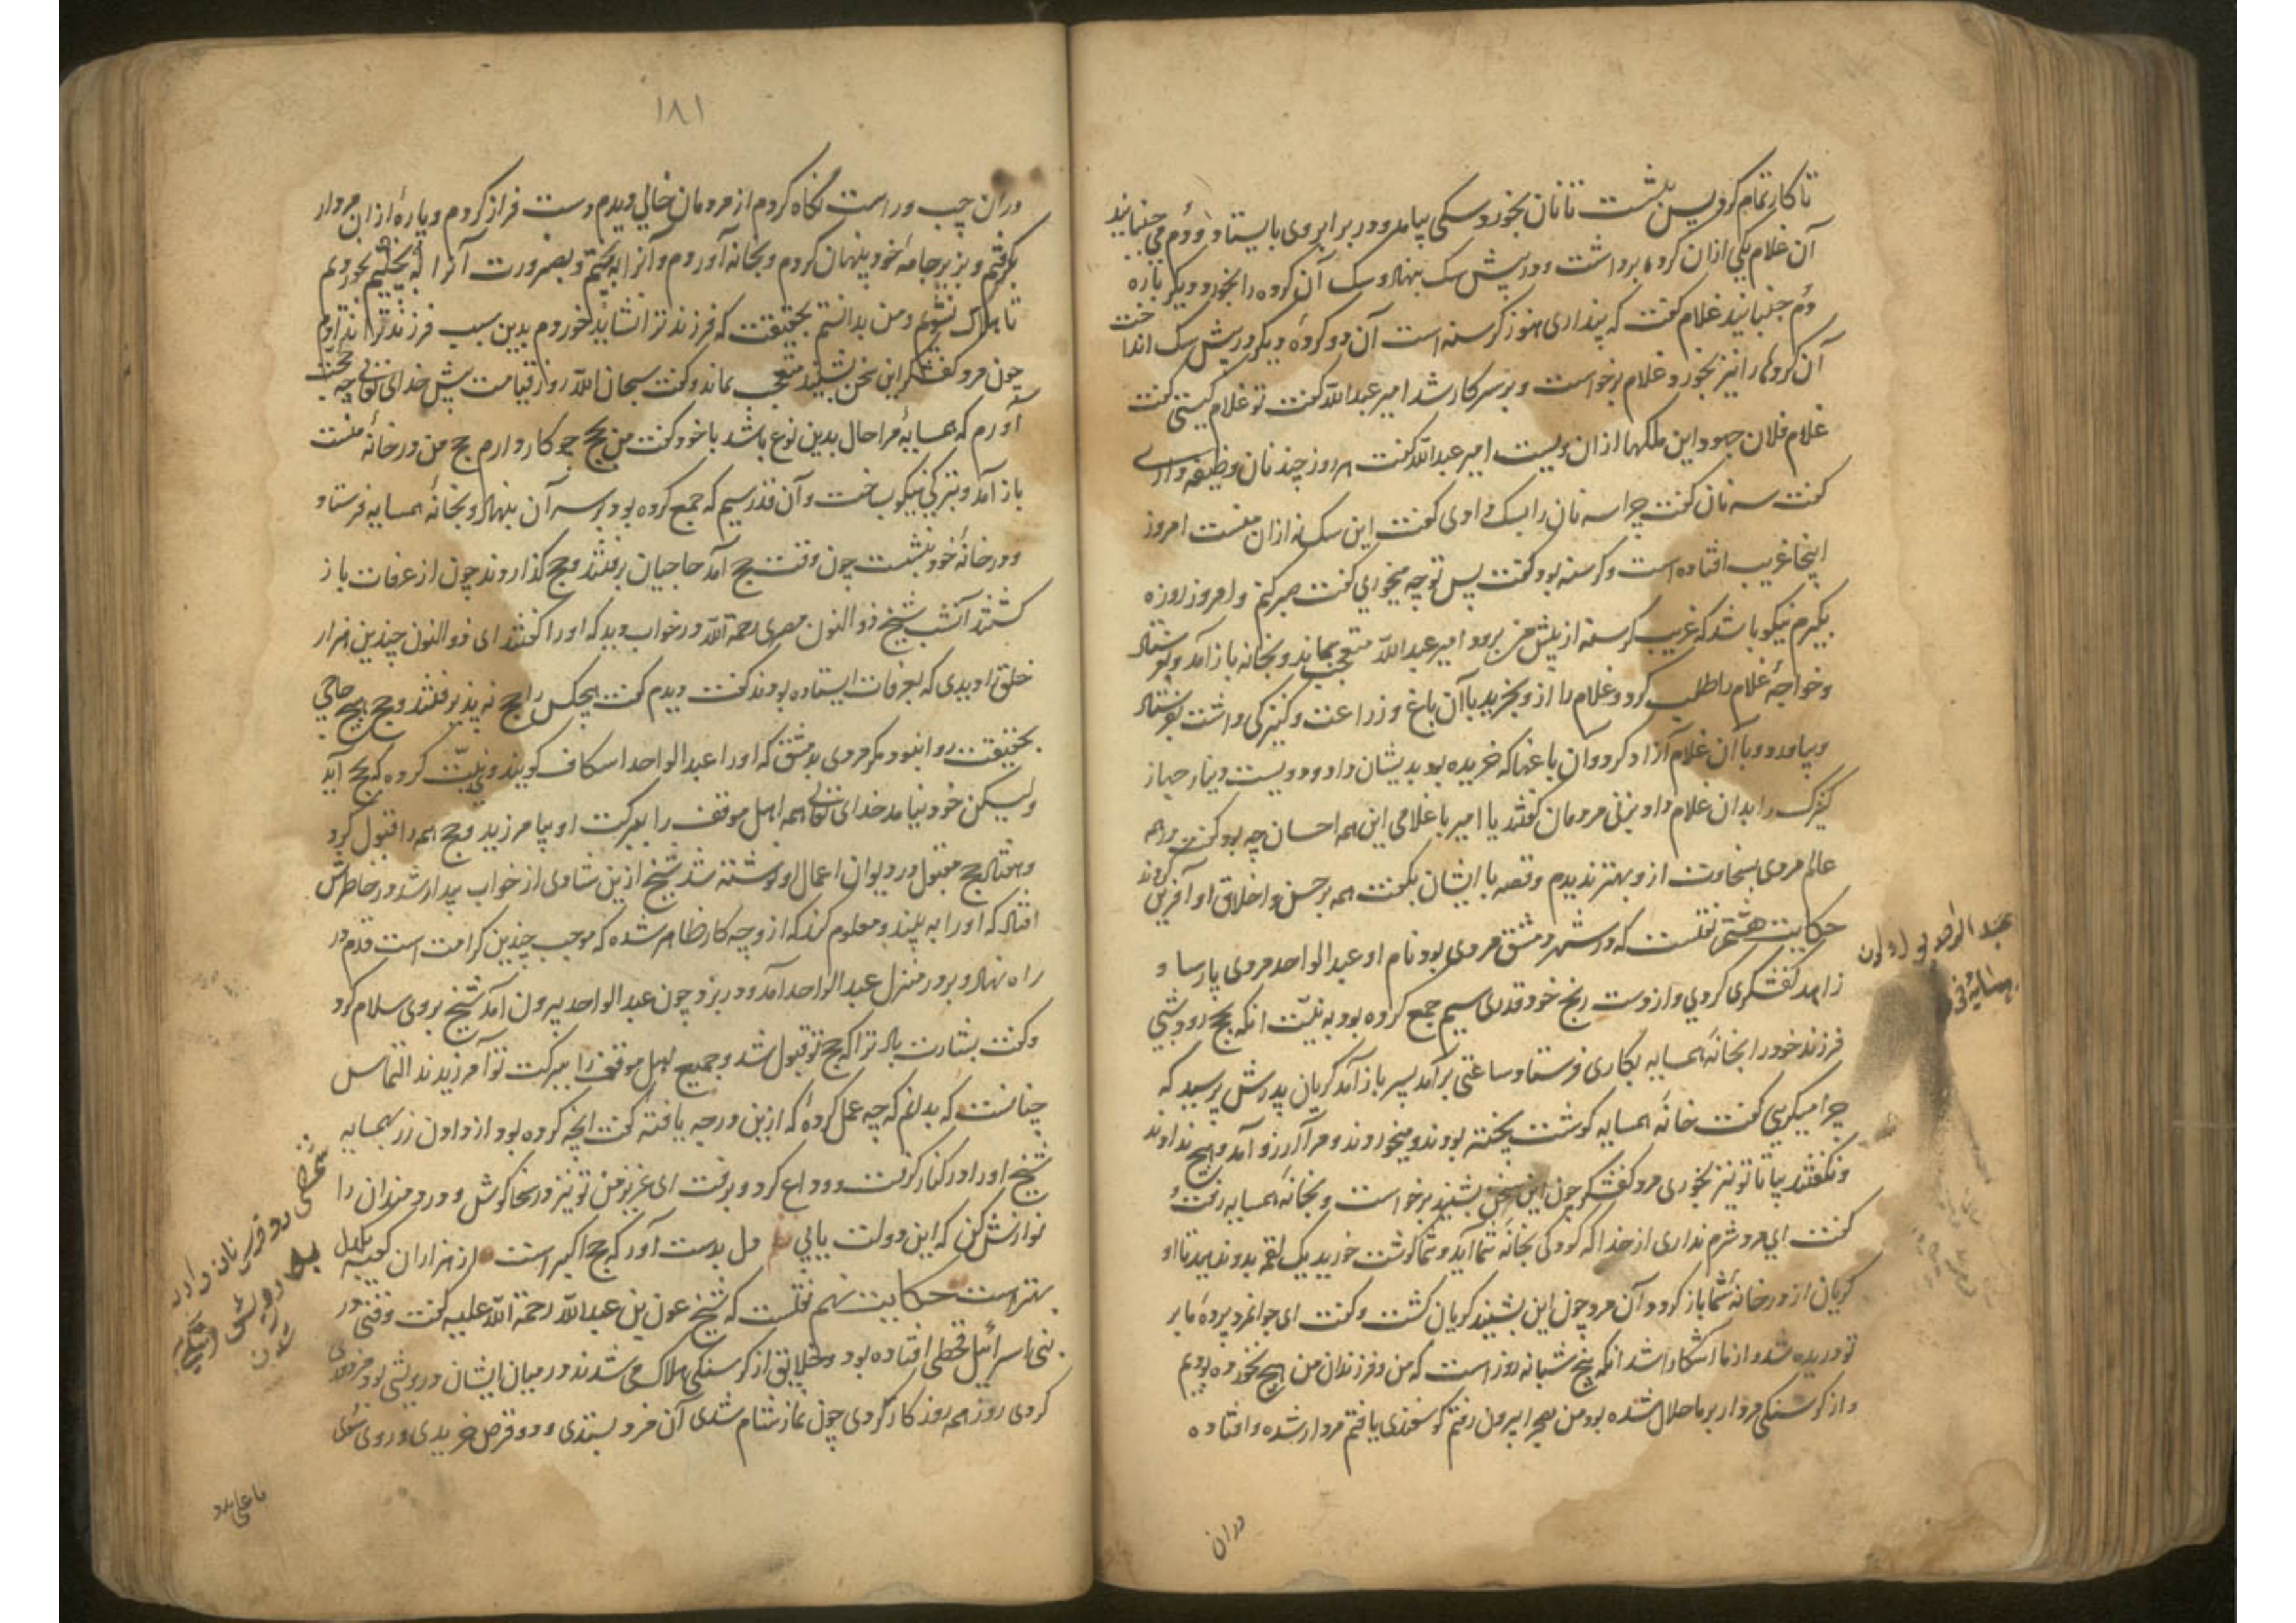 تا کار تمام کرد پس بنشست تا نان بخورد سکی بیامد و در برابر وی بایستاد و دُم می جنبانید
آن غلام یکی ازان کرده برداشت و در پیش سک بنهاد و سک آن کرده را بخورد و دیکر باره
دُم جنبانید غلام کفت که پنداری هنوز کرسنه است آن دو کردهٔ دیکر در پیش سک انداخت
آن کردها را نیز بخورد و غلام برخواست و بر سر کار شد امیر عبدالله کفت تو غلام کیستی کفت
غلام فلان جهود و این ملکها ازان ویست امیر عبدالله کفت هر روز چند نان وظیفه داری
کفت سه نان کفت چرا سه نان را بسک دادی کفت این سک نه ازان منست امروز
اینجا غریب افتاده است و کرسنه بود کفت پس تو چه میخوری کفت صبر کنم و امروز روزه
بگیرم نیکو باشد که غریب کرسنه از پیش من برود امیر عبدالله متعجب بماند و بخانه باز آمد و بفرستاد
و خواجهٔ غلام را طلب کرد و غلام را ازو بخرید با آن باغ و زراعت و کنیزکی داشت بفرستاد
و بیاورد و با آن غلام آزاد کرد و آن باغها که خریده بود بدیشان داد و دویست دینار جهاز
کنیزک را بدان غلام داد بزنی مردمان کفتند یا امیر با غلامی این همه احسان چه بود کفت در همه
عالم مردی بسخاوت ازو بهتر ندیدم و قصه با ایشان بکفت همه بر حسن و اخلاق او آفرین کردند
حکایت هشتم نقلست که در شهر دمشق مردی بود نام او عبدالواحد مردی پارسا و
زاهد کفشکری کردی و از دست رنج خود قدری سیم جمع کرده بود به نیّت انکه بحج رود شبی
فرزند خود را بخانهٔ همسایه بکاری فرستاد ساعتی برآمد پسر باز آمد کریان پدرش پرسید که
چرا میکریی کفت خانهٔ همسایه کوشت پخته بودند و میخوردند و مرا آرزو آمد و هیچ ندادند
و نکفتند بیا تا تو نیز بخوری مرد کفشکر چون این سخن بشنید برخواست و بخانهٔ همسایه رفت و
کفت ای مرد شرم نداری از خدا که کودکی بخانهٔ شما آید و شما کوشت خورید یک لقمه بدو ندهید تا او
کریان از در خانهٔ شما باز کردد آن مرد چون این بشنید کریان کشت و کفت ای جوانمرد پردهٔ ما بر
تو دریده شد و راز ما آشکارا شد انکه پنج شبانه روز است که من و فرزندان من هیچ نخورده بودیم
و از کرسنکی مردار بر ما حلال شده بود من بصحرا بیرون رفتم کوسفندی یافتم مردار شده و افتاده
دران
۱۸۱
دران چپ و راست نکاه کردم از مردمان خالی دیدم دست فراز کردم و پارهٔ ازان مردار
بکرفتم و بزیر جامهٔ خود پنهان کردم و بخانه آوردم و آنرا به پختیم و بضرورت آنرا بخوردیم
تا هلاک نشویم و من بدانستم بحقیقت که فرزند ترا نشاید خوردم بدین سبب فرزند ترا ندادم
چون مرد کفشکر این سخن بشنید متعجب بماند و کفت سبحان الله روز قیامت پیش خدای تعالی چه حجّت
آورم که همسایهٔ مرا حال بدین نوع باشد با خود کفت من بحج چو کار دارم حج من در خانهٔ منست
باز آمد و تبرکی نیکو بساخت و آن قدر سیم که جمع کرده بود بر سر آن بنهاد و بخانهٔ همسایه فرستاد
و در خانهٔ خود بنشست چون وقت حج آمد حاجیان برفتند و حج کذاردند چون از عرفات باز
کشتند آنشب شیخ ذوالنون مصری رحمة الله در خواب دید که او را کفتند ای ذوالنون چندین هزار
خلق را دیدی که بعرفات ایستاده بودند کفت دیدم کفت هیچکس را حج نه پذیرفتند و حج هیچ حاجی
بحقیقت روا نبود مکر مردی بدمشق که او را عبدالواحد اسکاف کویند وی نیّت کرده که بحج آید
ولیکن خود نیامد خدای تعالی همه اهل موقف را ببرکت او بیامرزید و حج همه را قبول کرد
و هفتاد حج مقبول در دیوان اعمال او نوشته شد شیخ ازین شادی از خواب بیدار شد در خاطرش
افتاد که او را به بیند و معلوم کند که از وی چه کار ظاهر شده که موجب چندین کرامت است قدم در
راه نهاد و بر در منزل عبدالواحد آمد و در بزد چون عبدالواحد بیرون آمد شیخ بر وی سلام کرد
و کفت بشارت باد ترا که حج تو قبول شد و جمیع اهل موقف را ببرکت تو آمرزیدند التماس
چنانست که بدانم که چه عمل کردهٔ که ازین درجه یافتهٔ کفت انچه کرده بود از دادن زر بهمسایه
شیخ او را در کنار کرفت و وداع کرد و برفت ای عزیز من تو نیز در سخا کوش و دردمندان را
نوازش کن که این دولت یابی دل بدست آور که حج اکبر است از هزاران کعبه یکدل
بهتر است حکایت نهم نقلست که شیخ عون بن عبدالله رحمة الله علیه کفت وقتی در
بنی اسرائیل قحطی افتاده بود و خلایق از کرسنکی هلاک می شدند در میان ایشان درویشی بود مزدوری
کردی روز همه روز کار کردی چون نماز شام شدی آن مزد بستدی و دو قرص خریدی و روی سوی